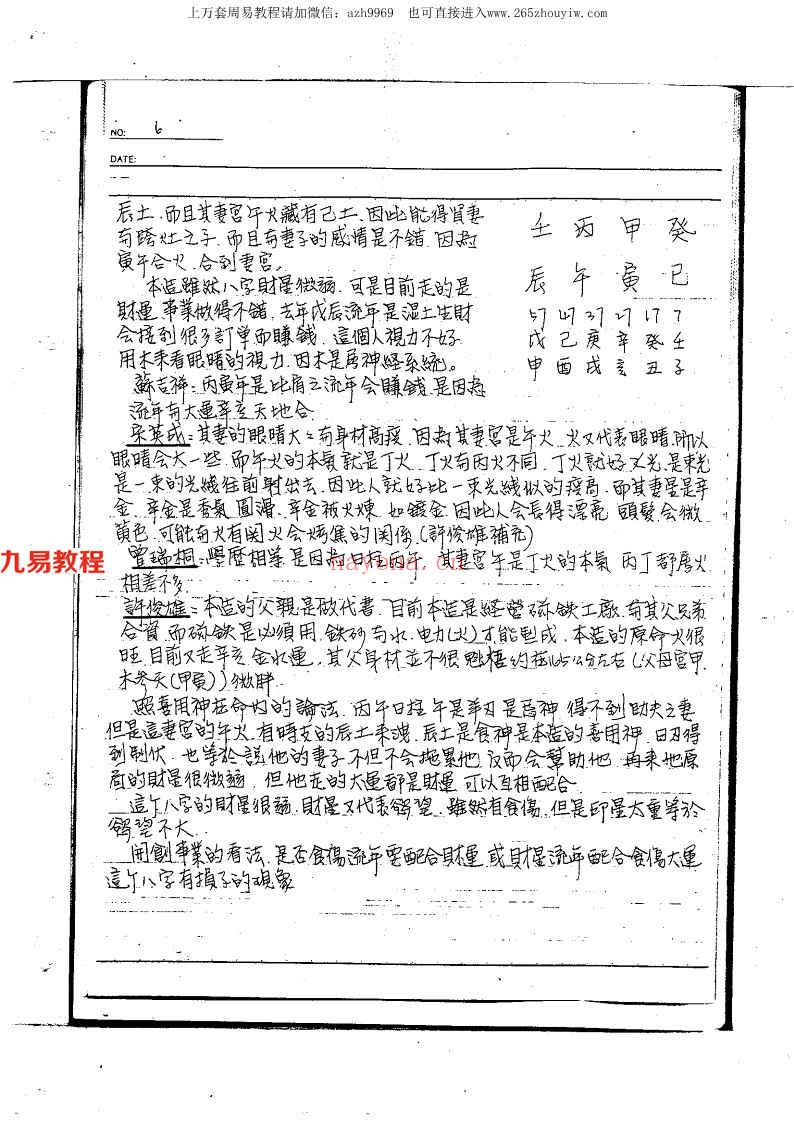 上万套周易教程请加微信：azh9969 也可直接进入www.265zhouyiw.com
NO: 6
DATE:
辰土.而且其妻宮午火藏有己土.因此能得賢妻
有跨灶之子.而且有妻子的感情是不錯.因為
寅午合火.合到妻宮。
壬 丙 甲 癸
辰 午 寅 巳
57 47 37 27 17 7
戊 己 庚 辛 癸 壬
申 酉 戌 亥 丑 子
本造雖然八字財星微弱.可是目前走的是
財運.事業做得不錯.去年戊辰流年是湿土生財
会接到很多訂单而賺錢.這個人視力不好.
用木來看眼睛的視力.因木是為神経系統。
蘇吉祥：丙寅年是比肩之流年会賺錢.是因為
流年有大運辛亥天地合
宋英成：其妻的眼睛大：有身材高瘦.因為其妻宮是午火.火又代表眼睛.所以
眼睛会大一些.而午火的本氣就是丁火.丁火有丙火不同.丁火就好义光.是束光
是一束的光線往前射出去.因此人就好比一束光線似的瘦高.而其妻星是辛
金.辛金是香氣圓滑.辛金被火煉.如鍍金.因此人会長得漂亮.頭髮会微
黄色.可能有火有関火会烤焦的関係.(許俊雄補充)
九易教程
nayona.cn
曾瑞桐：學歷相等是因為日柱丙午.其妻宮午是丁火的本氣.丙丁都屬火
相差不多.
許俊雄：本造的父親是做代書.目前本造是経營硫鉄工廠.有其父兄弟
合資.而硫鉄是必須用.鉄砂有水.电力(火)才能製成.本造的原命火很
旺.目前又走辛亥金水運.其父身材並不很魁梧約在165公分左右(父母宮甲
木参天(甲寅))微胖.
照喜用神在命内的論法.丙午日柱午是羊刃是忌神.得不到助夫之妻
但是這妻宮的午火.有時支的辰土来洩.辰土是食神是本造的喜用神.日刃得
到制伏.也等於說他的妻子不但不会拖累他.反而会幫助他.再来他原
局的財星很微弱.但他走的大運都是財運.可以互相配合.
這个八字的財星很弱.財星又代表慾望.雖然有食傷.但是印星太重等於
慾望不大.
開創事業的看法.是否食傷流年要配合財運.或財星流年配合食傷大運
這个八字有損子的現象